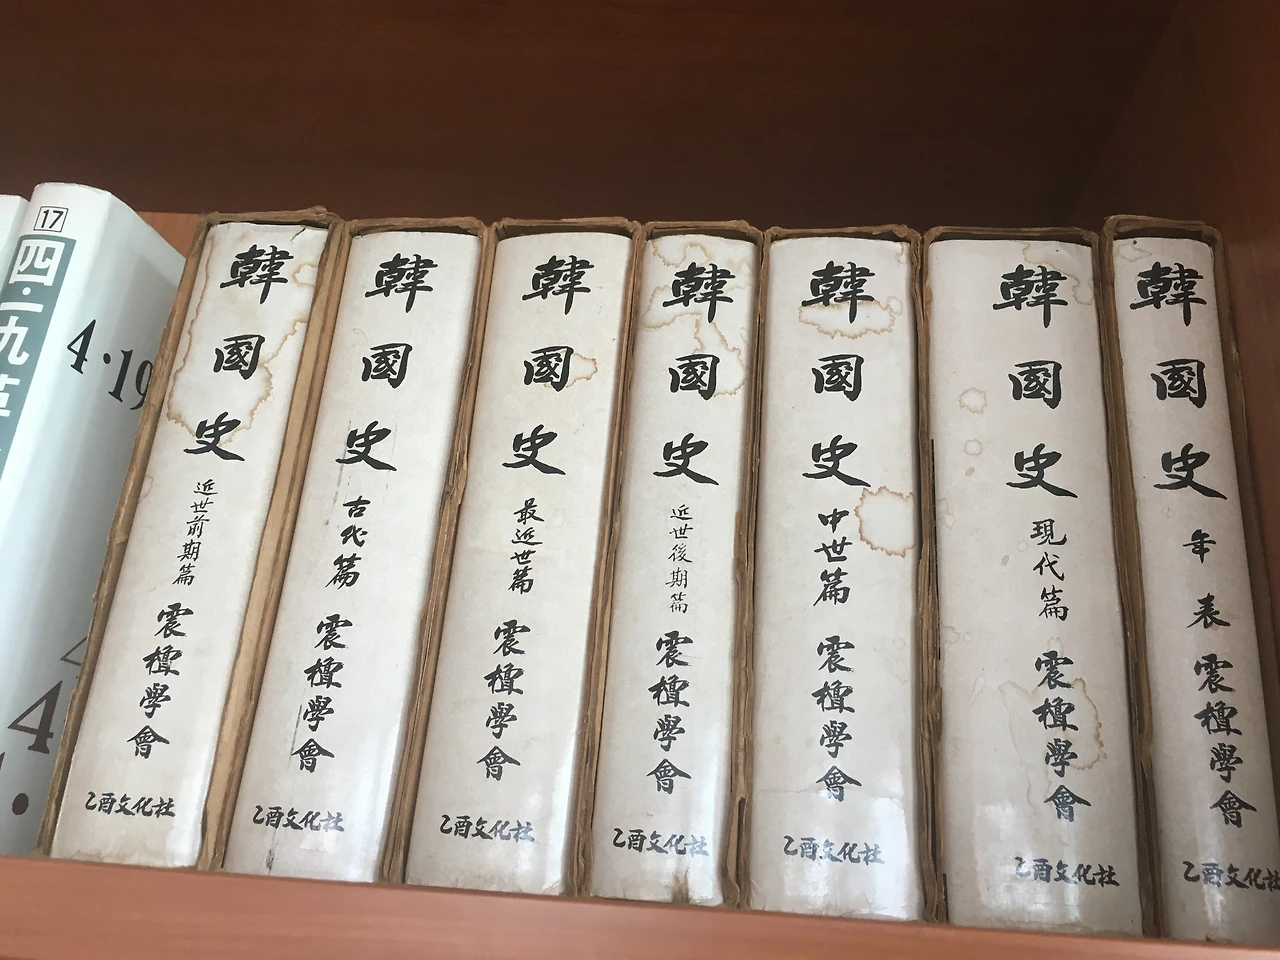 17
四·一九革
4·19
4
韓國史 近世前期篇 震檀學會
乙酉文化社
韓國史 古代篇 震檀學會
乙酉文化社
韓國史 最近世篇 震檀學會
乙酉文化社
韓國史 近世後期篇 震檀學會
乙酉文化社
韓國史 中世篇 震檀學會
乙酉文化社
韓國史 現代篇 震檀學會
乙酉文化社
韓國史 年表 震檀學會
乙酉文化社